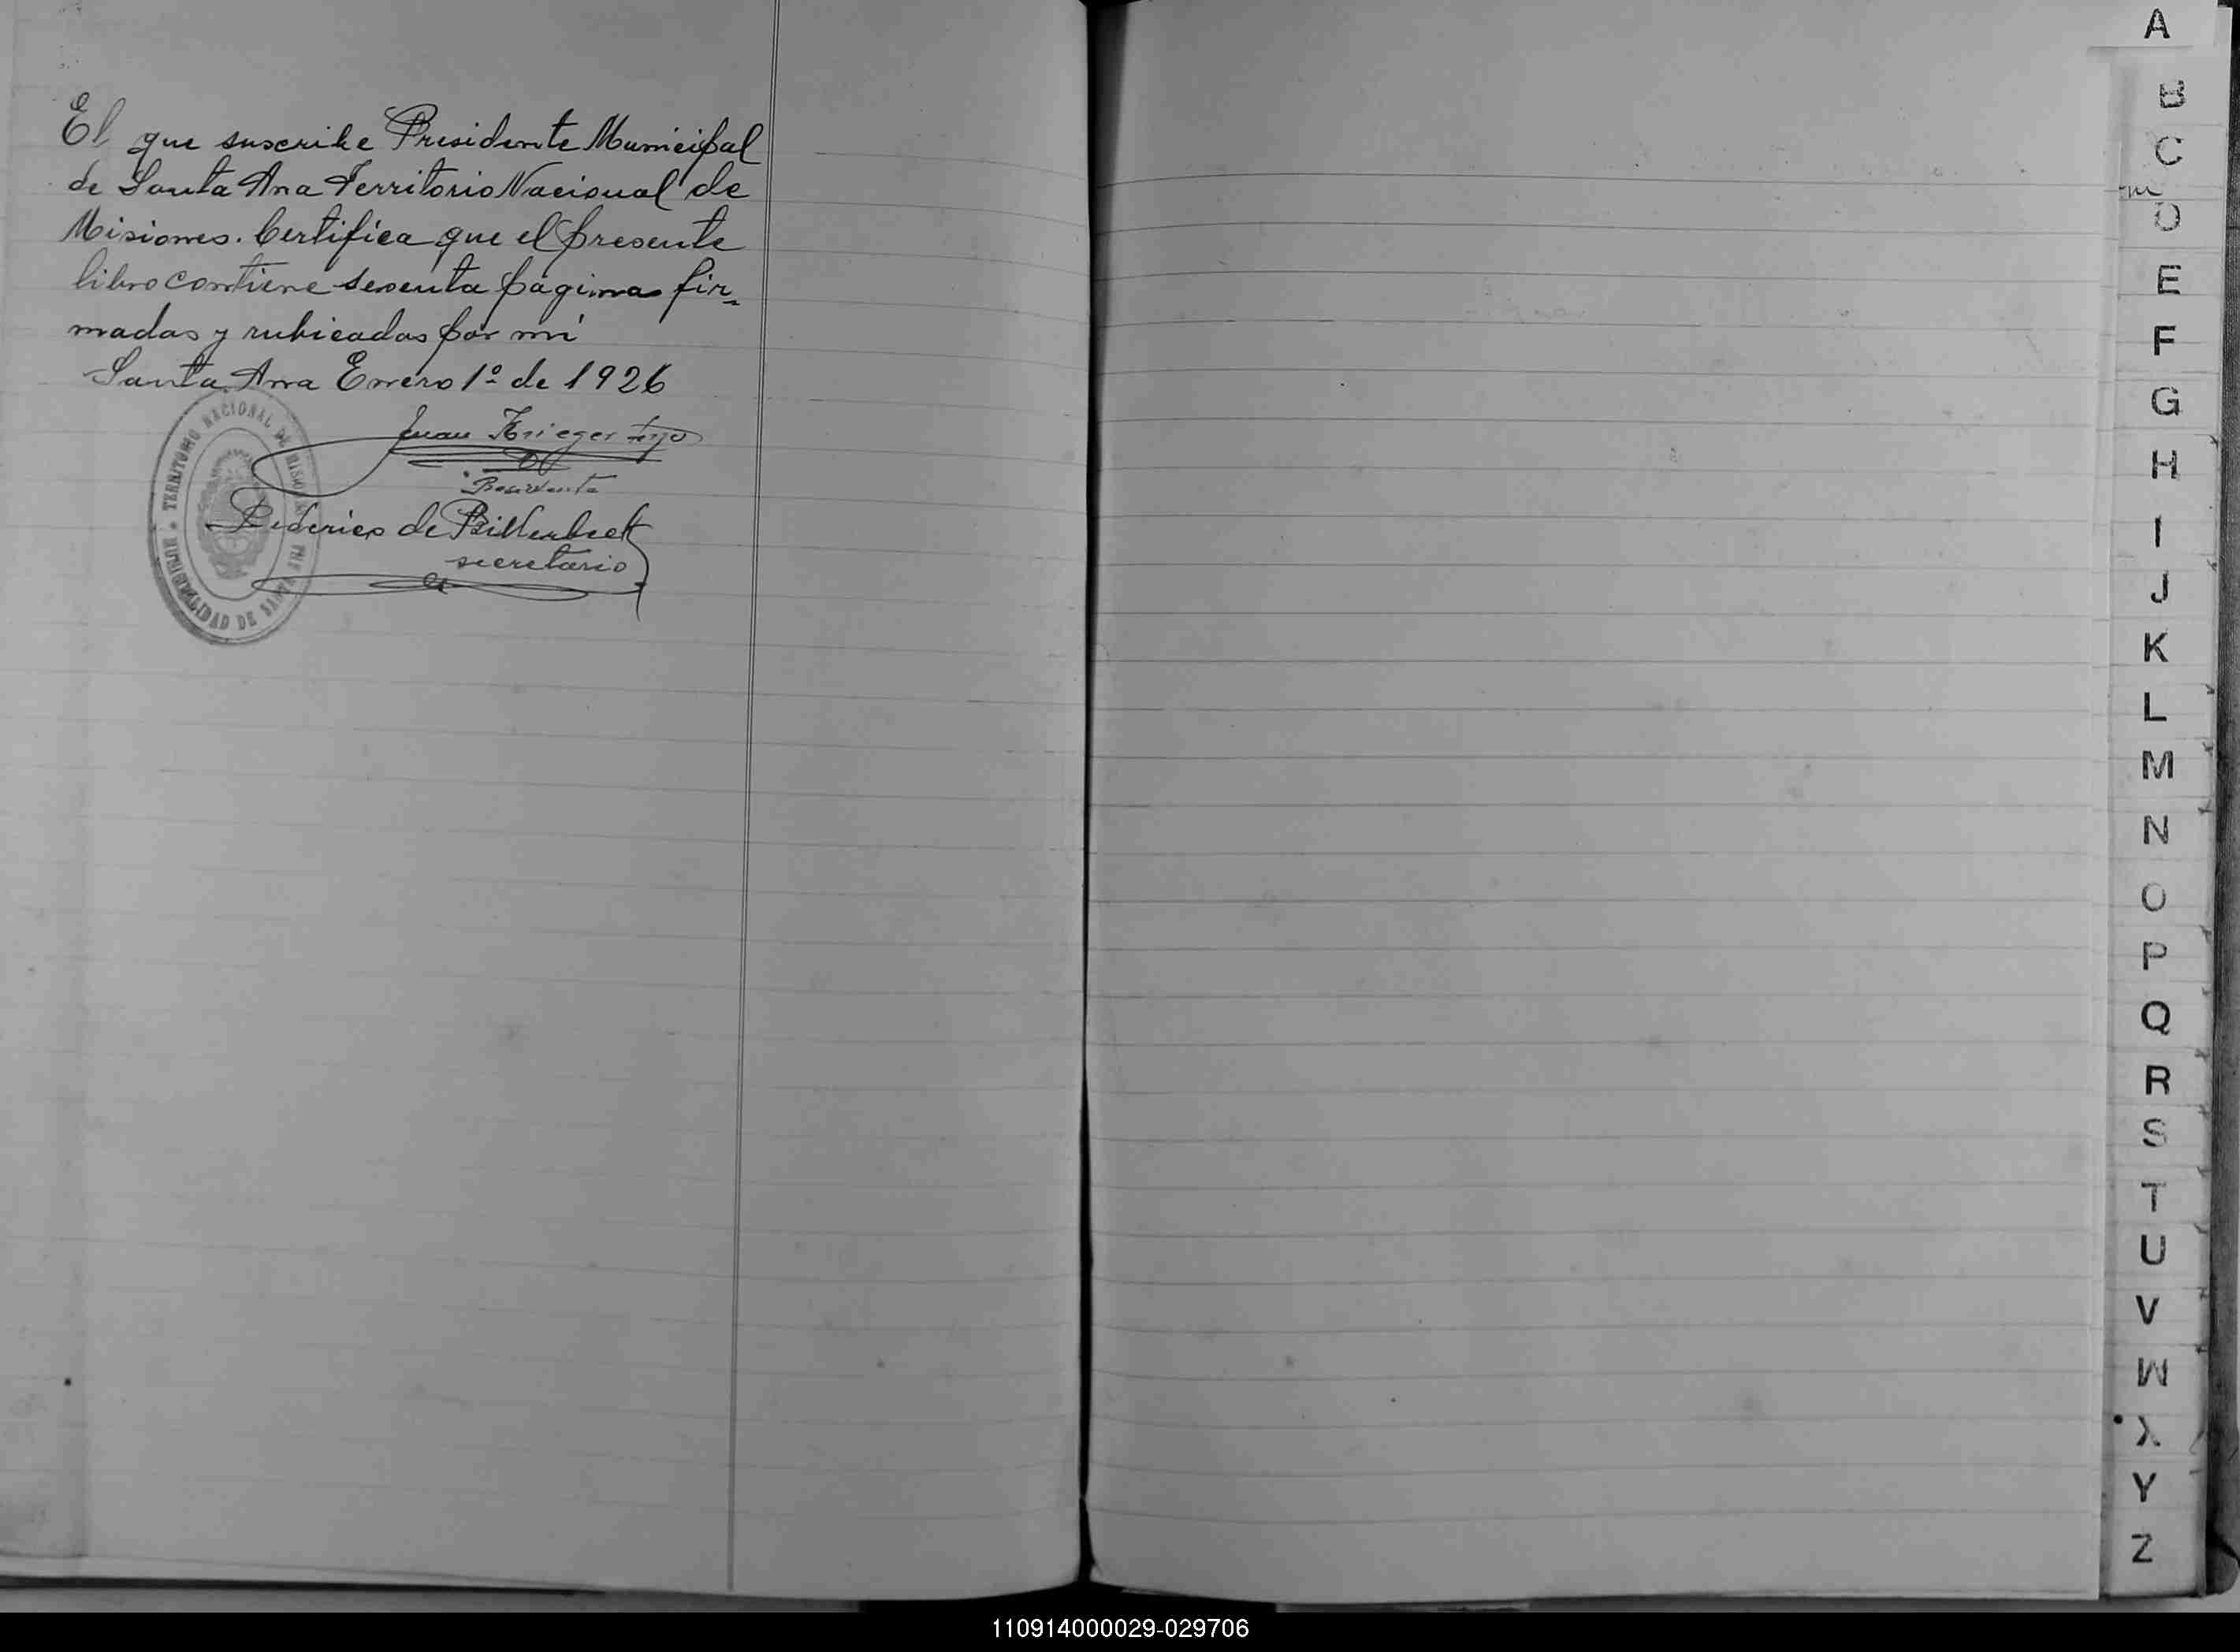 El que suscribe Presidente Municipal
de Santa Ana Territorio Nacional de
Misiones. Certifica que el presente
libro contiene sesenta paginas fir-
madas y rubicadas por mi
Santa Ana Enero 1º de 1926
Juan Krieger
Presidente
Federico de Billerbeck
secretario
TERRITORIO NACIONAL DE MISIONES
MUNICIPALIDAD DE SANTA
A
B
C
D
E
F
G
H
I
J
K
L
M
N
O
P
Q
R
S
T
U
V
W
X
Y
Z
110914000029-029706